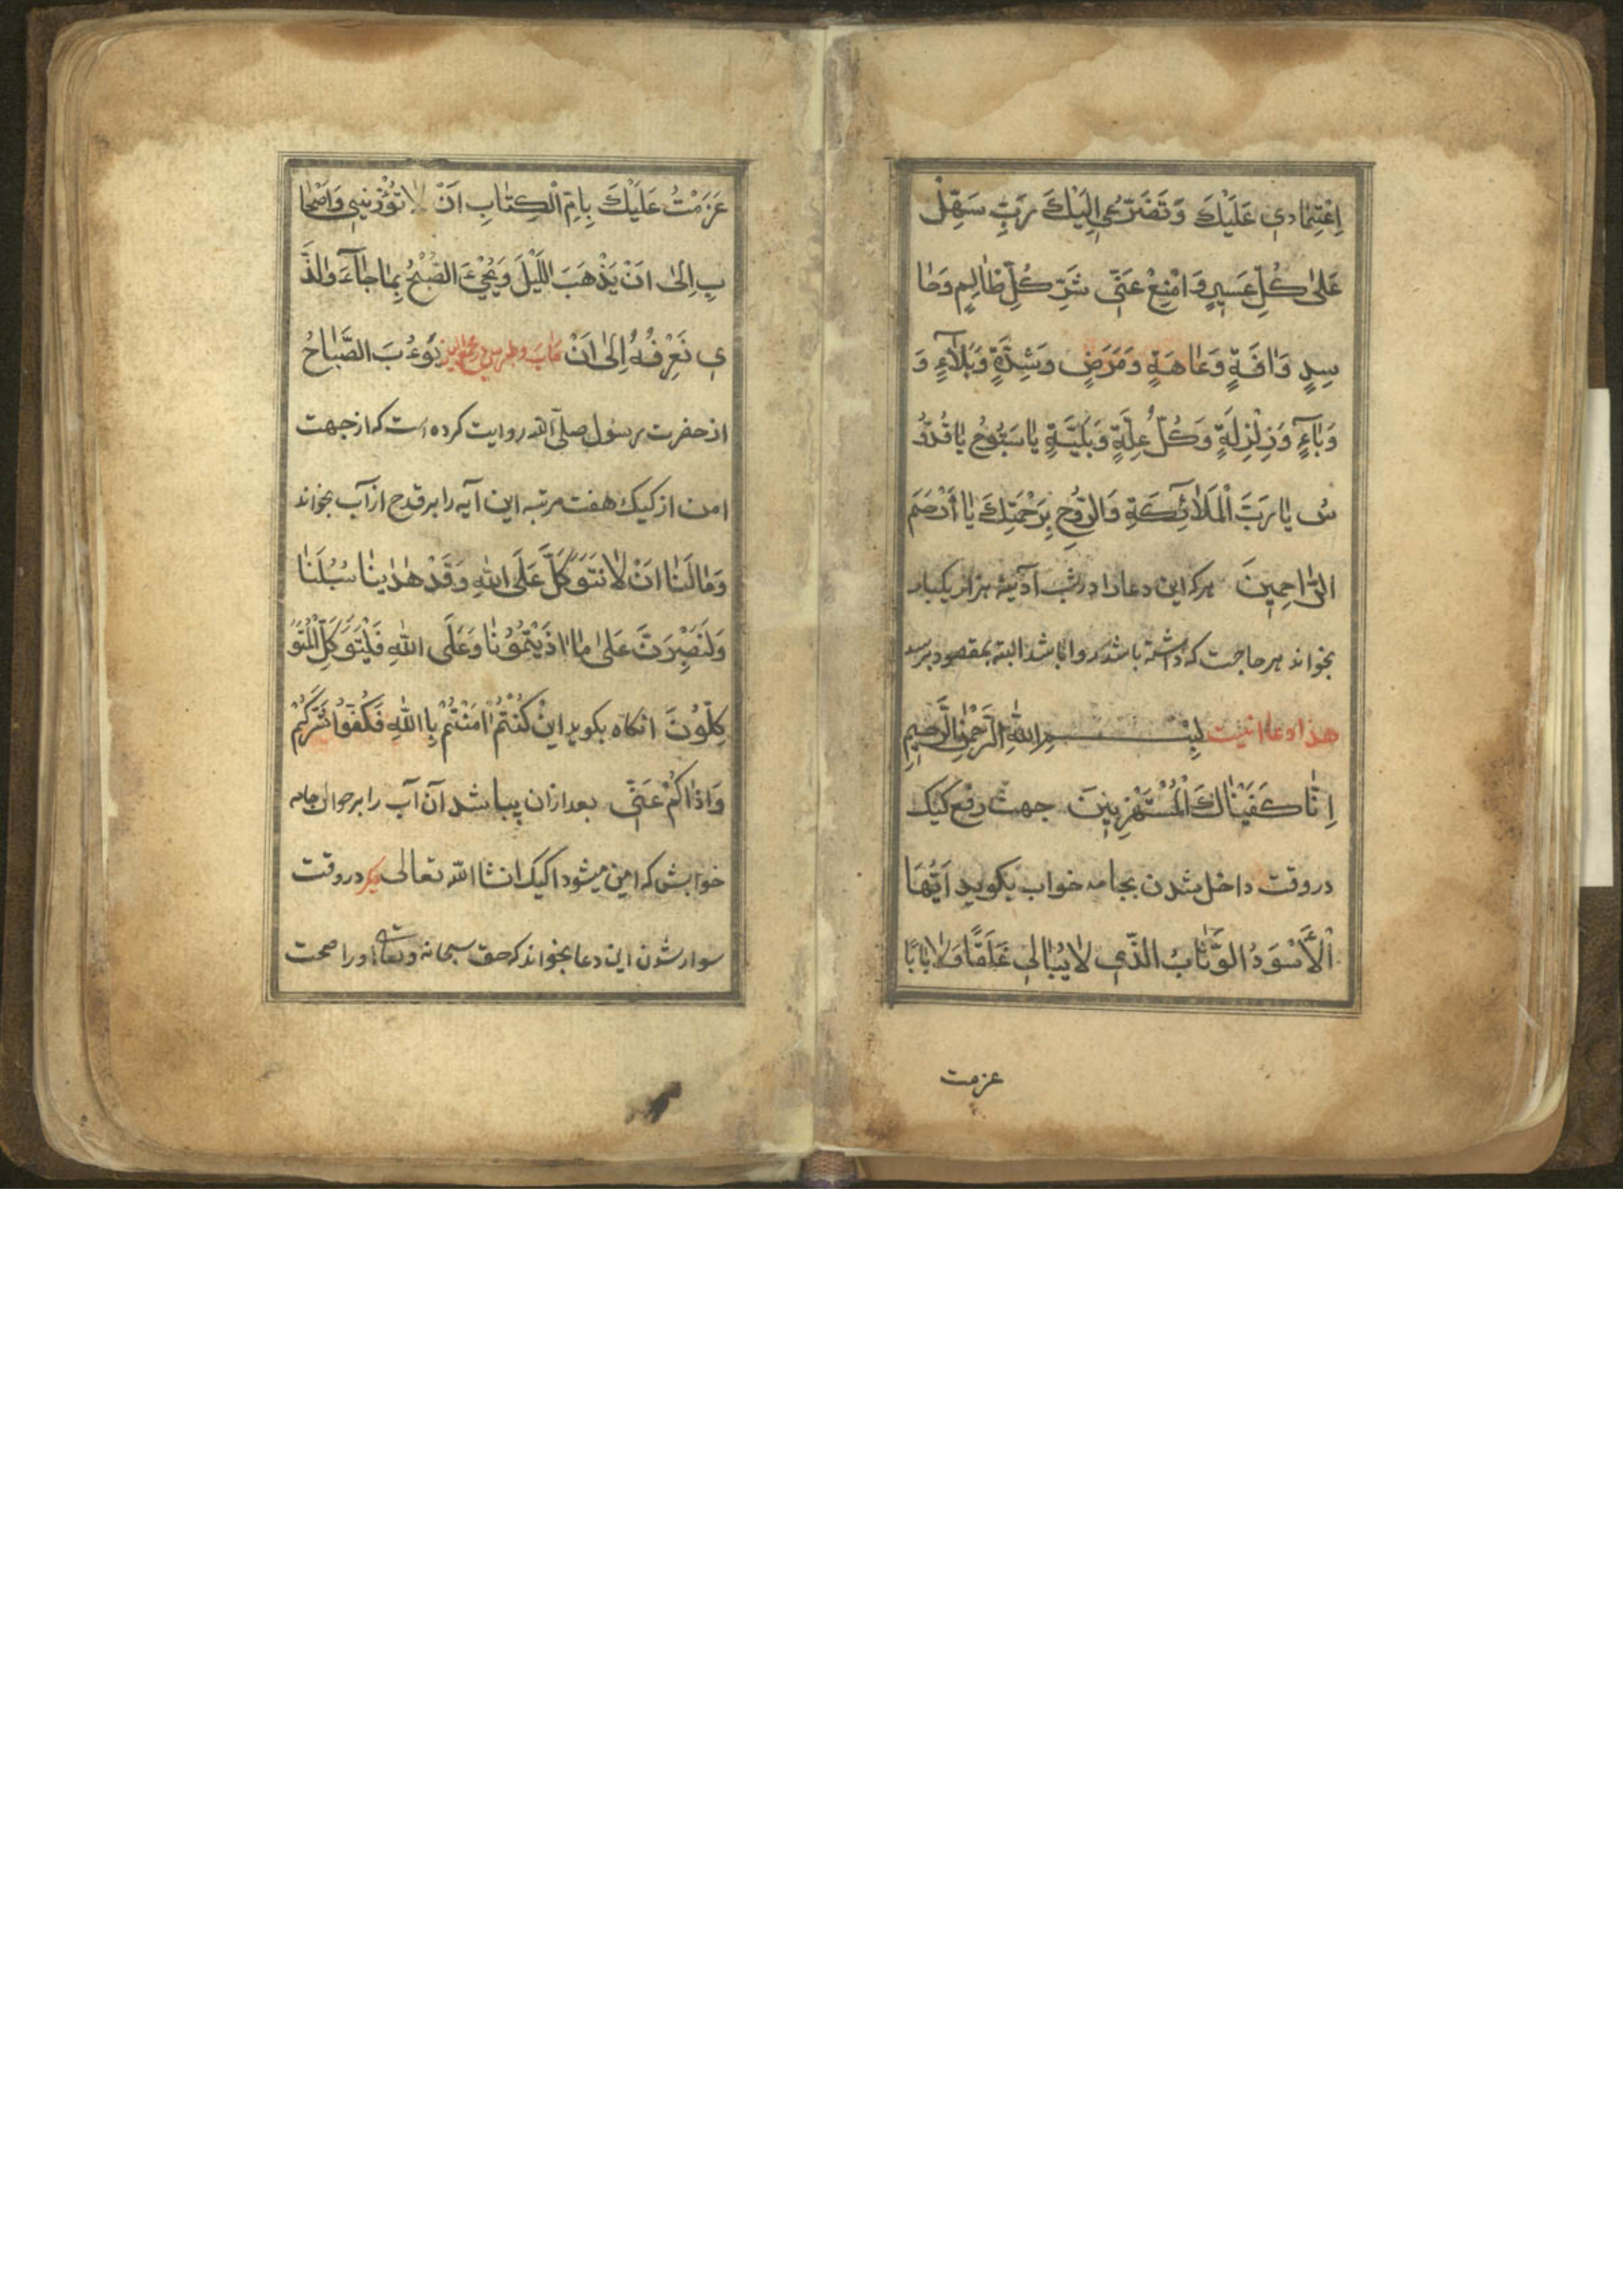 اِعْتِمٰادي عَلَيْكَ وَتَضَرُّعي اِلَيْكَ رَبِّ سَهِّلْ
عَلىٰ كُلِّ عَسيرٍ وَامْنِعْ عَنّي شَرِّ كُلِّ ظٰالِمٍ وَحٰا
سِدٍ وَاٰفَةٍ وَعٰاهَةٍ وَمَرَضٍ وَشِدَّةٍ وَبَلٰآءٍ وَ
وَبٰآءٍ وَزِلْزِلَةٍ وَكُلِّ عِلَّةٍ وَبَلِيَّةٍ يٰا سَبُّوحُ يٰا قُدُّو
سُ يٰا رَبَّ الْمَلٰائِكَةِ وَالرُّوحِ بِرَحْمَتِكَ يٰا أَرْحَمَ
الرّٰاحِمِينَ هر كه اين دعا را در شب آدينه هزار يكبار
بخواند هر حاجت كه داشته باشد روا باشد البته بمقصود برسد
هذا دعا اينست بِسْمِ اللهِ الرَّحْمٰنِ الرَّحِيمِ
اِنّٰا كَفَيْنٰاكَ الْمُسْتَهْزِئينَ جهت دفع كيك
در وقت داخل شدن بجامه خواب بكويد اَيُّهَا
الْأَسْوَدُ الوَثّٰابُ الَّذي لٰا يُبٰالي غَلَقًا وَلٰا بٰابًا
عزمت
عَزَمْتُ عَلَيْكَ بِاُمِّ الْكِتٰابِ اَنْ لٰا تُؤْذيني وَاَصْحٰا
بي اِلىٰ اَنْ يَذْهَبَ اللَّيْلَ وَيَجْئَ الصُّبْحُ بِمٰا جٰآءَ وَالَّذ
ي نَعْرِفُهُ اِلىٰ اَنْ يَؤُبَ الصَّبٰاحُ
از حضرت رسول صلى الله روايت كرده است كه از جهت
امن از كيك هفت مرتبه اين آيه را بر قدح از آب بخواند
وَمٰا لَنٰا اَنْ لٰا نَتَوَكَّلَ عَلَى اللهِ وَقَدْ هَدٰينٰا سُبُلَنٰا
وَلَنَصْبِرَنَّ عَلىٰ مٰا اٰذَيْتُمُونٰا وَعَلَى اللهِ فَلْيَتَوَكَّلِ الْمُتَوَ
كِلّوُنَ انكاه بكويد اِنْ كُنْتُمْ اٰمَنْتُمْ بِا اللهِ فَكُفّوُا شَرَّكُمْ
وَاَذٰاكُمْ عَنّي بعد از ان بپاشد آن آب را بر حوال جامه
خوابش كه امين ميشود از كيك انشا الله تعالى ديكر در وقت
سوار شدن اين دعا بخواند كه حق سبحانه وتعالى او را صحت